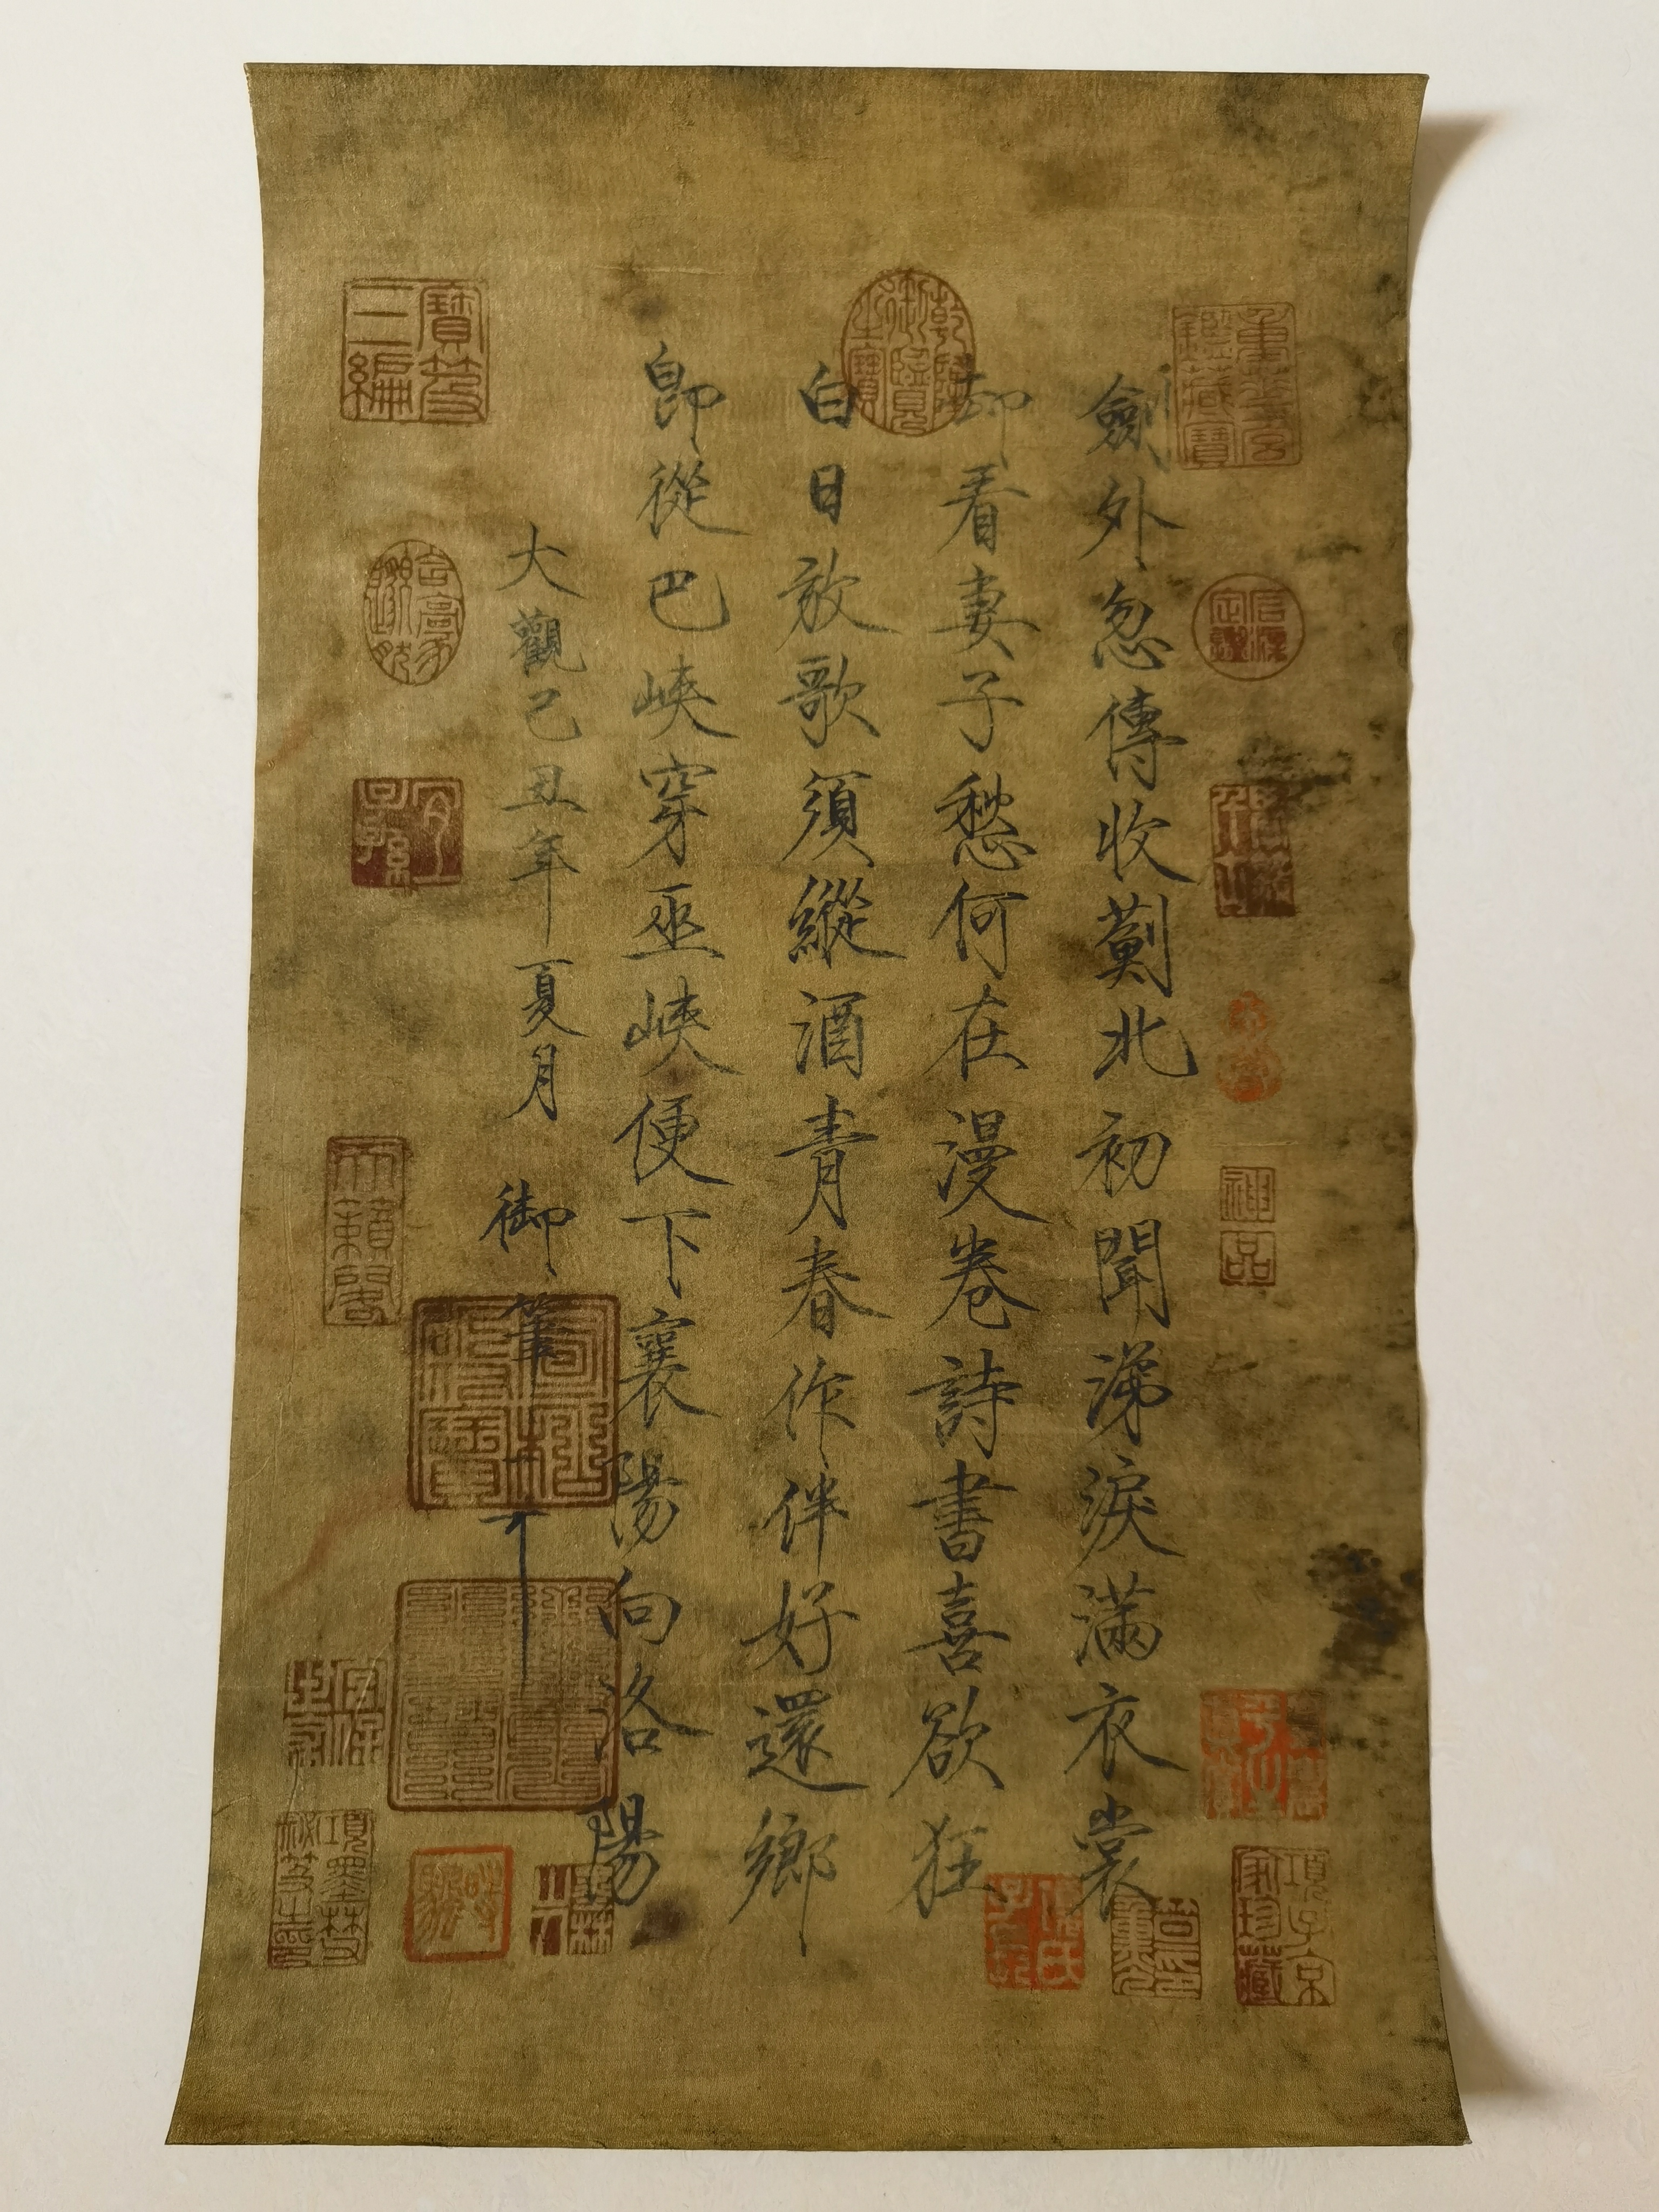 重華宮鑑藏寶
神品
項子京家珍藏
劍外忽傳收薊北初聞涕淚滿衣裳
却看妻子愁何在漫卷詩書喜欲狂
乾隆御覽之寶
白日放歌須縱酒青春作伴好還鄉
即從巴峽穿巫峽便下襄陽向洛陽
大觀己丑年夏月 御筆
寶笈三編
宜子孫
天籟閣
項墨林秘笈之印